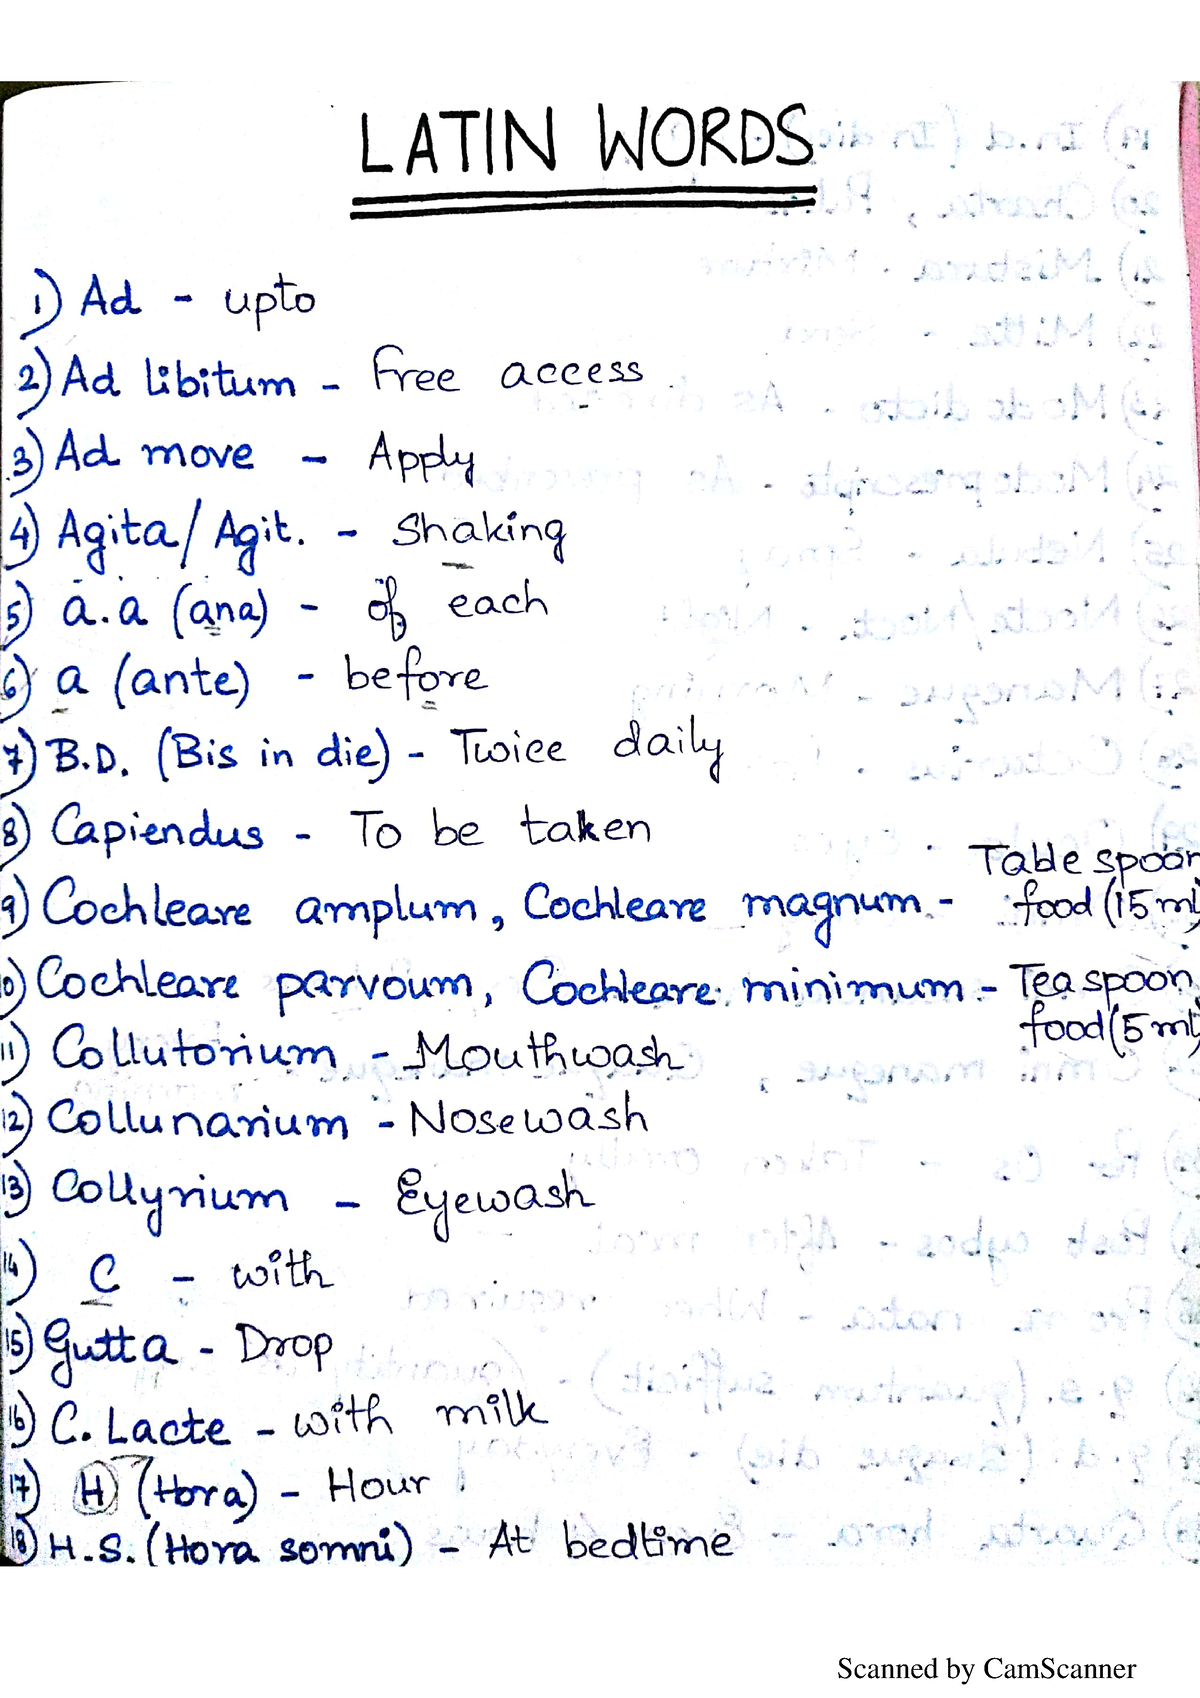 LATIN WORDS
1) Ad - upto
2) Ad libitum - Free access
3) Ad move - Apply
4) Agita/Agit. - Shaking
5) a.a (ana) - of each
6) a (ante) - before
7) B.D. (Bis in die) - Twice daily
8) Capiendus - To be taken
9) Cochleare amplum, Cochleare magnum - Table spoon
food (15 ml)
10) Cochleare parvoum, Cochleare minimum - Tea spoon
food (5 ml)
11) Collutorium - Mouthwash
12) Collunarium - Nosewash
13) Collyrium - Eyewash
14) C - with
15) Gutta - Drop
16) C. Lacte - with milk
17) H (Hora) - Hour
18) H.S. (Hora somni) - At bedtime
Scanned by CamScanner